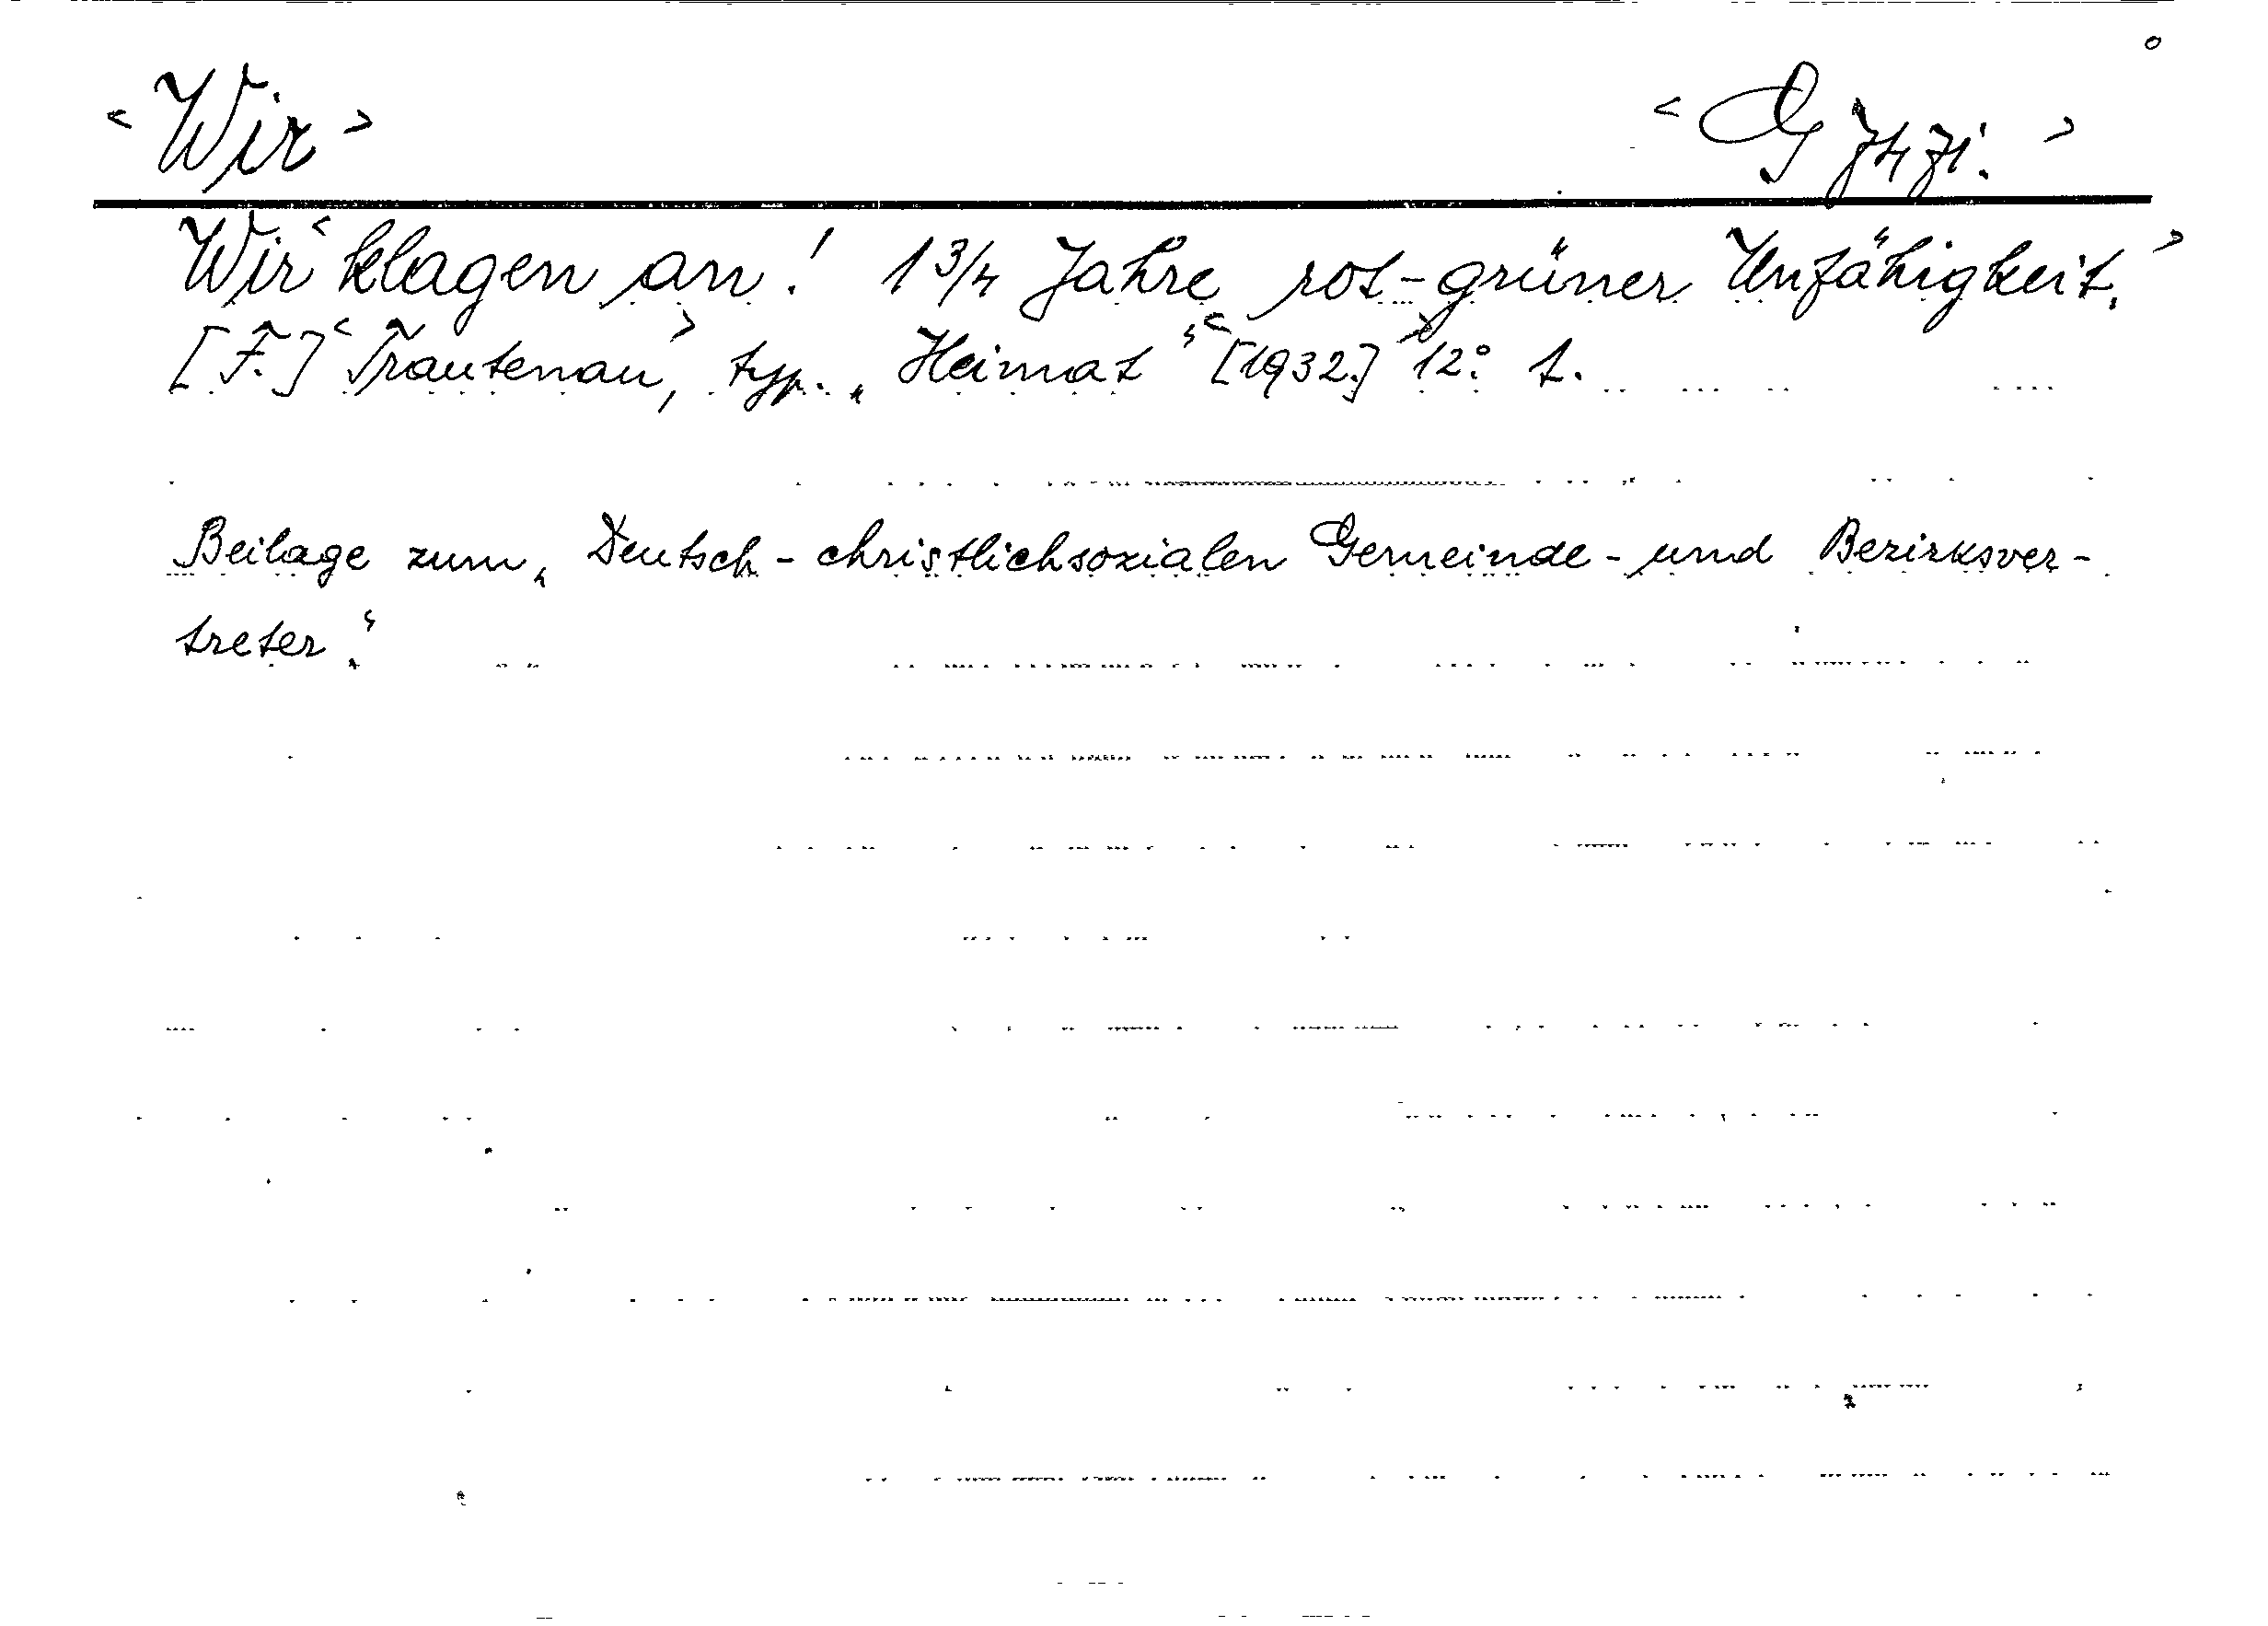 <Wir> <G 7471.>
Wir <klagen an! 1 3/4 Jahre rot-grüner Unfähigkeit.>
[F.] <Trautenau>, typ. „Heimat“ <[1932.]> 12° 1.
Beilage zum „Deutsch-christlichsozialen Gemeinde- und Bezirksver-
treter.“